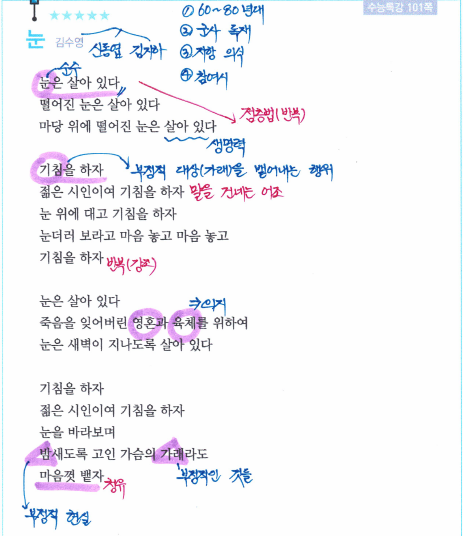 수능특강 101쪽
① 60~80년대
눈 김수영
신동엽 김지하
② 군사 독재
③ 저항 의식
④ 참여시
순수
눈은 살아 있다
떨어진 눈은 살아 있다
점층법(반복)
마당 위에 떨어진 눈은 살아 있다
생명력
기침을 하자
부정적 대상(가래)을 뱉어내는 행위
젊은 시인이여 기침을 하자 말을 건네는 어조
눈 위에 대고 기침을 하자
눈더러 보라고 마음 놓고 마음 놓고
기침을 하자 반복(강조)
눈은 살아 있다
⇒의지
죽음을 잊어버린 영혼과 육체를 위하여
눈은 새벽이 지나도록 살아 있다
기침을 하자
젊은 시인이여 기침을 하자
눈을 바라보며
밤새도록 고인 가슴의 가래라도
마음껏 뱉자 청유
부정적인 것들
부정적 현실